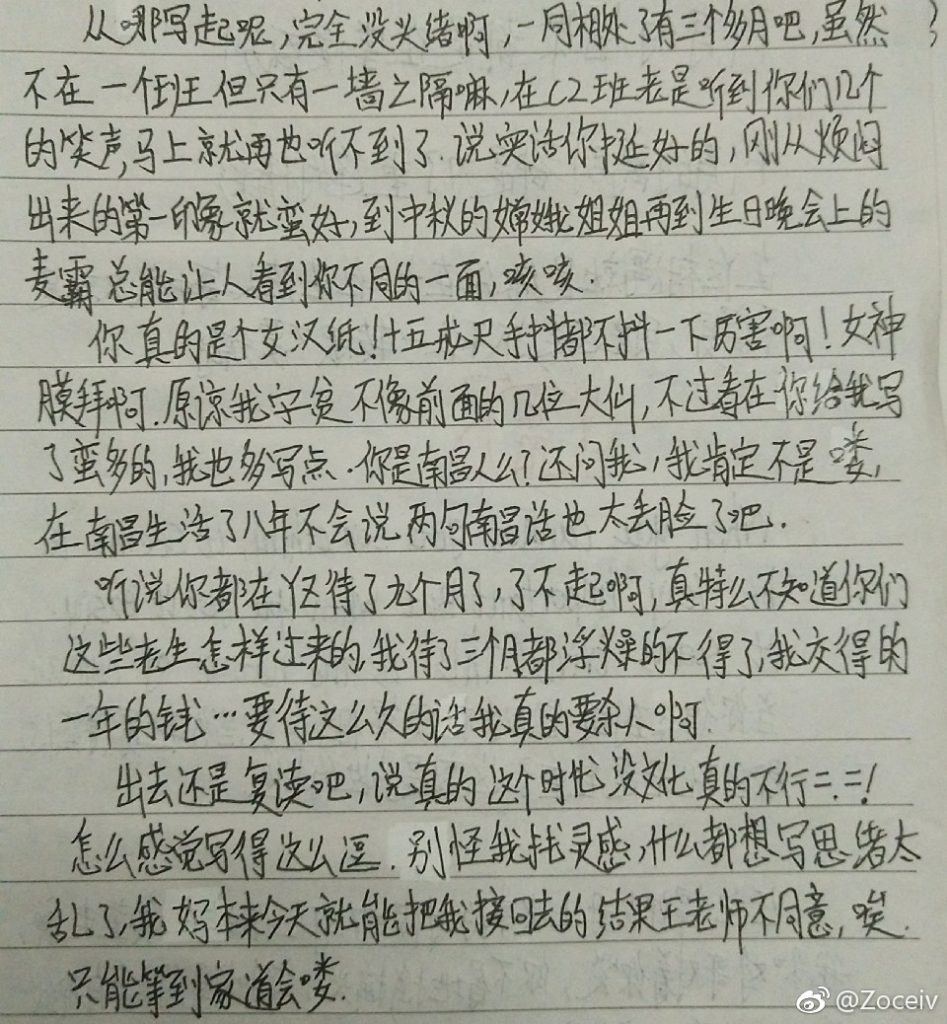 从哪写起呢,完全没头绪啊,一同相处了有三个多月吧,虽然
不在一个班但只有一墙之隔嘛,在C2班老是听到你们几个
的笑声,马上就再也听不到了.说实话你挺好的,刚从烦闷
出来的第一印象就蛮好,到中秋的嫦娥姐姐再到生日晚会上的
麦霸总能让人看到你不同的一面,咳咳.
你真的是个女汉纸!十五戒尺手抖都不抖一下厉害啊!女神
膜拜啊.原谅我字贫不像前面的几位大仙,不过看在你给我写
了蛮多的,我也多写点.你是南昌人么?还问我,我肯定不是喽,
在南昌生活了八年不会说两句南昌话也太丢脸了吧.
听说你都在Y区待了九个月了,了不起啊,真特么不知道你们
这些老生怎样过来的,我待了三个月都浮燥的不得了,我交得的
一年的钱…要待这么久的话我真的要杀人啊.
出去还是复读吧,说真的这个时代没文化真的不行=.=!
怎么感觉写得这么逗.别怪我找灵感,什么都想写思绪太
乱了,我妈本来今天就能把我接回去的结果王老师不同意,唉.
只能等到家道会喽.
@Zoceiv